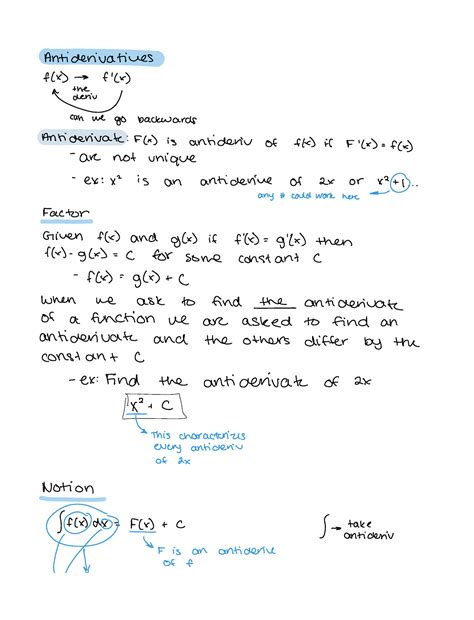 Antiderivatives
f(x) → f'(x)
the
deriv
can we go backwards
Antiderivate: F(x) is antideriv of f(x) if F'(x) = f(x)
- are not unique
- ex: x² is an antiderive of 2x or x²+1...
any # could work here
Factor
Given f(x) and g(x) if f'(x) = g'(x) then
f(x) - g(x) = C for some constant C
- f(x) = g(x) + C
When we ask to find the antiderivate
of a function we are asked to find an
antiderivate and the others differ by the
constant C
- ex: Find the antiderivate of 2x
x² + C
This characterizes
every antideriv
of 2x
Notion
∫f(x)dx = F(x) + C
∫ → take
antideriv
F is an antiderive
of f